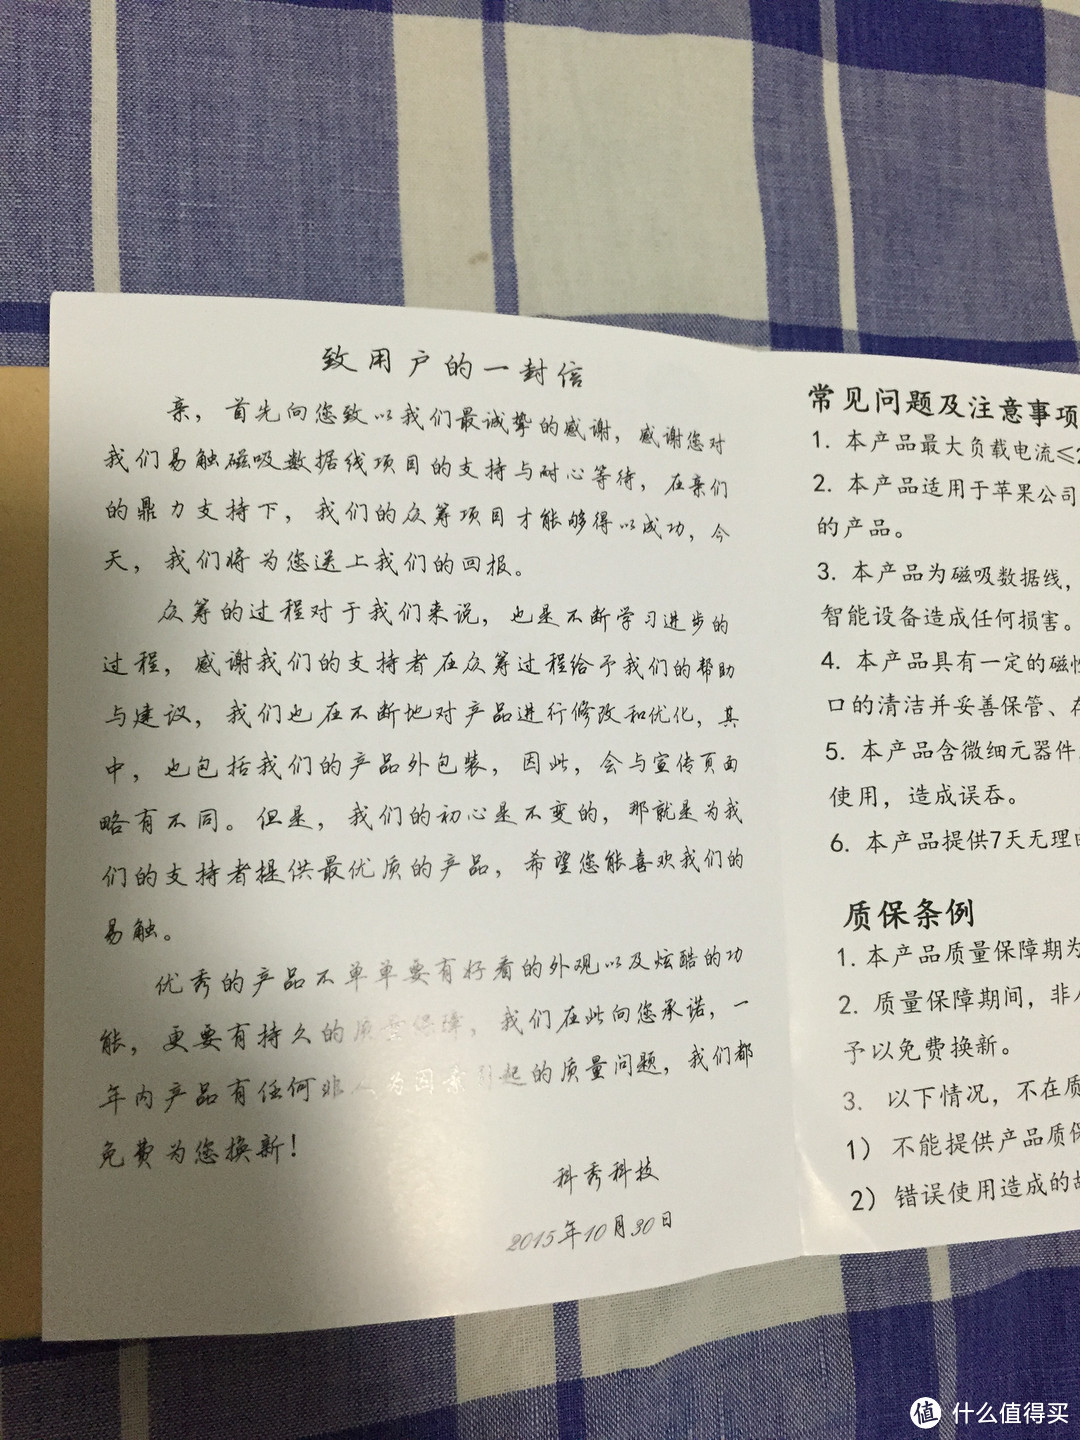 致用户的一封信
亲，首先向您致以我们最诚挚的感谢，感谢您对
我们易触磁吸数据线项目的支持与耐心等待，在亲们
的鼎力支持下，我们的众筹项目才能够得以成功，今
天，我们将为您送上我们的回报。
众筹的过程对于我们来说，也是不断学习进步的
过程，感谢我们的支持者在众筹过程给予我们的帮助
与建议，我们也在不断地对产品进行修改和优化，其
中，也包括我们的产品外包装，因此，会与宣传页面
略有不同。但是，我们的初心是不变的，那就是为我
们的支持者提供最优质的产品，希望您能喜欢我们的
易触。
优秀的产品不单单要有好看的外观以及炫酷的功
能，更要有持久的质量保障，我们在此向您承诺，一
年内产品有任何非人为因素引起的质量问题，我们都
免费为您换新！
科秀科技
2015年10月30日
常见问题及注意事项
1. 本产品最大负载电流≤2
2. 本产品适用于苹果公司
的产品。
3. 本产品为磁吸数据线，
智能设备造成任何损害。
4. 本产品具有一定的磁性
口的清洁并妥善保管、存
5. 本产品含微细元器件
使用，造成误吞。
6. 本产品提供7天无理由
质保条例
1. 本产品质量保障期为
2. 质量保障期间，非人
予以免费换新。
3. 以下情况，不在质
1）不能提供产品质保
2）错误使用造成的故
值 什么值得买